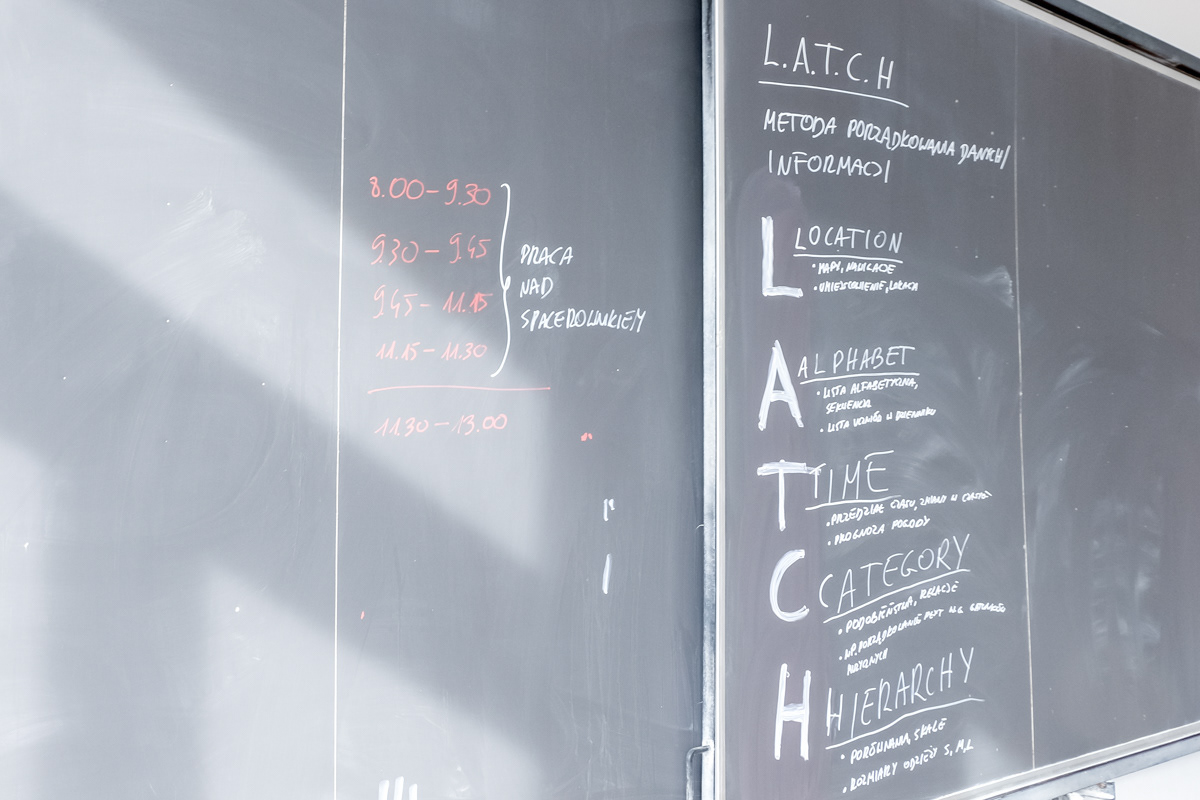 8.00 - 9.30
9.30 - 9.45
9.45 - 11.15
11.15 - 11.30
PRACA
NAD
SPACEROWNIKIEM
11.30 - 13.00
L.A.T.C.H
METODA PORZĄDKOWANIA DANYCH/
INFORMACJI
L LOCATION
• MAPY, NAWIGACJE
• UMIEJSCOWIENIE, LOKACJA
A ALPHABET
• LISTA ALFABETYCZNA,
SEKWENCJA
• LISTA UCZNIÓW W DZIENNIKU
T TIME
• PRZEDZIAŁ CZASU, ZMIANY W CZASIE
• PROGNOZA POGODY
C CATEGORY
• PODOBIEŃSTWA, RELACJE
• NP. PORZĄDKOWANIE PŁYT W.G. GATUNKÓW
MUZYCZNYCH
H HIERARCHY
• PORÓWNANIA, SKALE
• ROZMIARY ODZIEŻY S, M, L